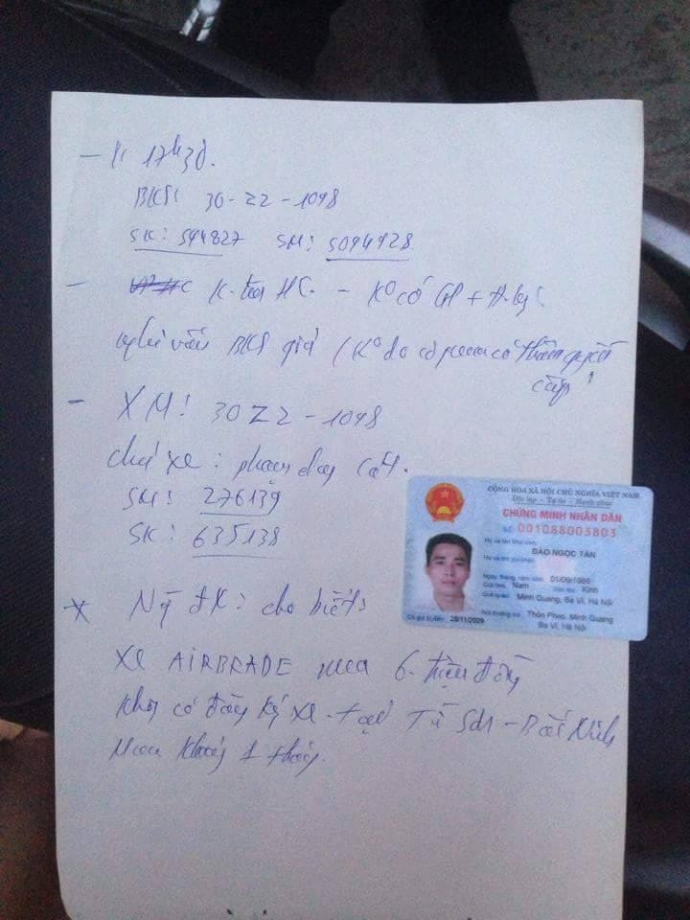 - 17h30.
BKS: 30-Z2-1098
SK: 544827 SM: 5094928
- K.tra HC. - K° có GP + đ.ký
nghi vấn BKS giả (K° do cơ quan có thẩm quyền
cấp!
- XM: 30Z2-1098
chủ xe:
SM: 276139
SK: 635138
* Ng ĐK: cho biết:
Xe AIRBRADE mua 6. triệu đồng
khg có đăng ký xe. tại Từ Sơn - Bắc Ninh
Mua khoảng 1 tháng.
CỘNG HÒA XÃ HỘI CHỦ NGHĨA VIỆT NAM
Độc lập - Tự do - Hạnh phúc
CHỨNG MINH NHÂN DÂN
SỐ 001088003803
Họ và tên khai sinh:
ĐÀO NGỌC TÂN
Họ và tên gọi khác:
Ngày, tháng, năm sinh:
Giới tính: Nam Dân tộc: Kinh
Quê quán: Minh Quang, Ba Vì, Hà Nội
Nơi thường trú: Thôn Pheo, Minh Quang
Ba Vì, Hà Nội
Có giá trị đến: 28/11/2028